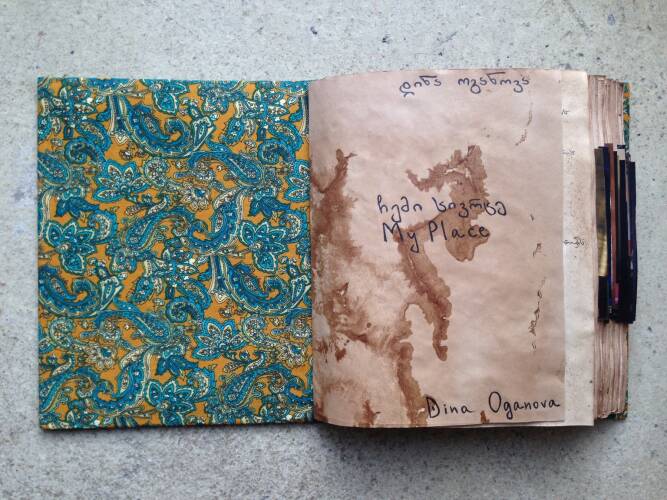 დინა ოგანოვა
ჩემი სივრცე
My Place
Dina Oganova